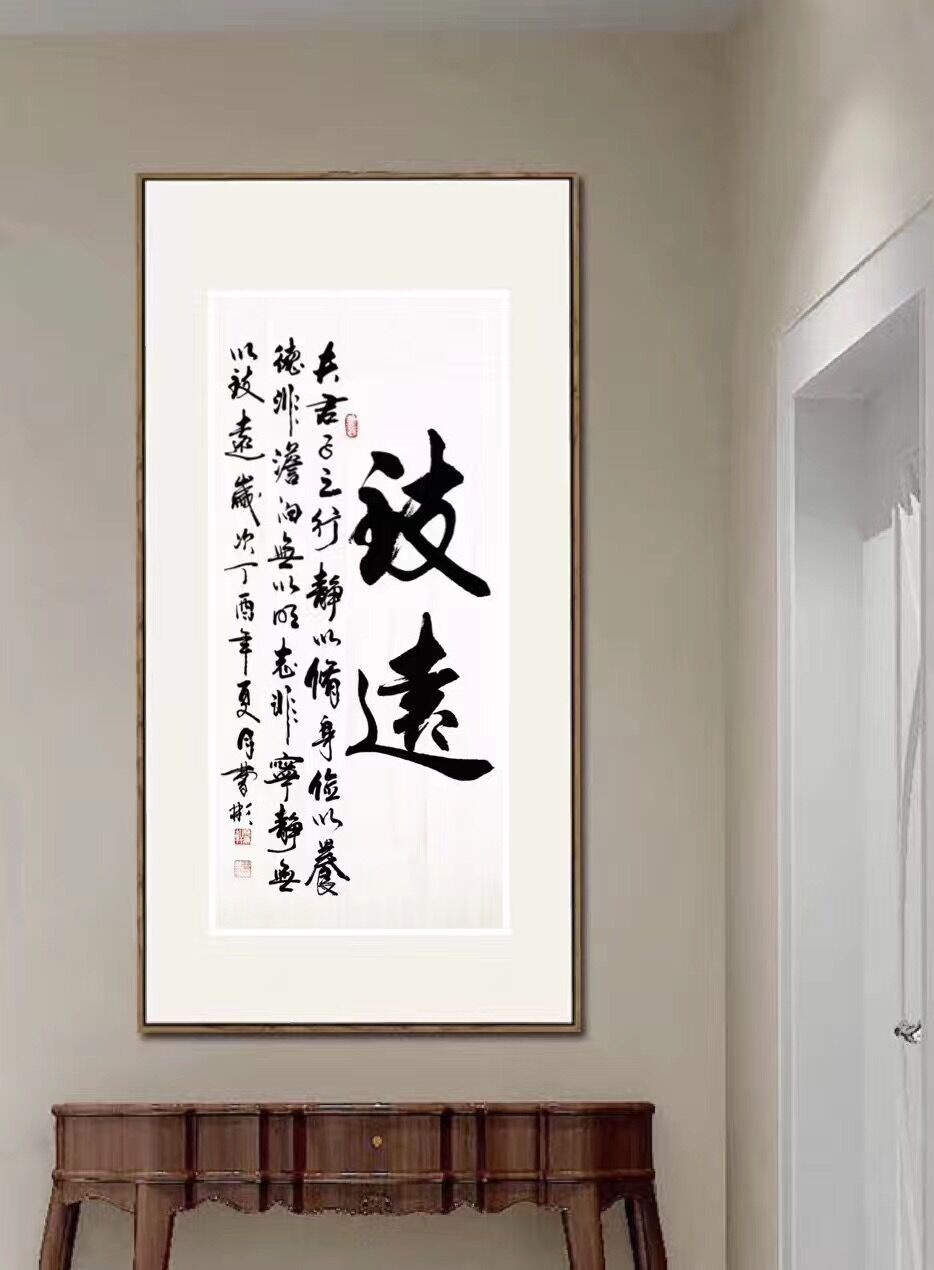 致遠
夫君子之行靜以脩身儉以養
德非澹泊無以明志非寧靜無
以致遠歲次丁酉年夏月曹彬